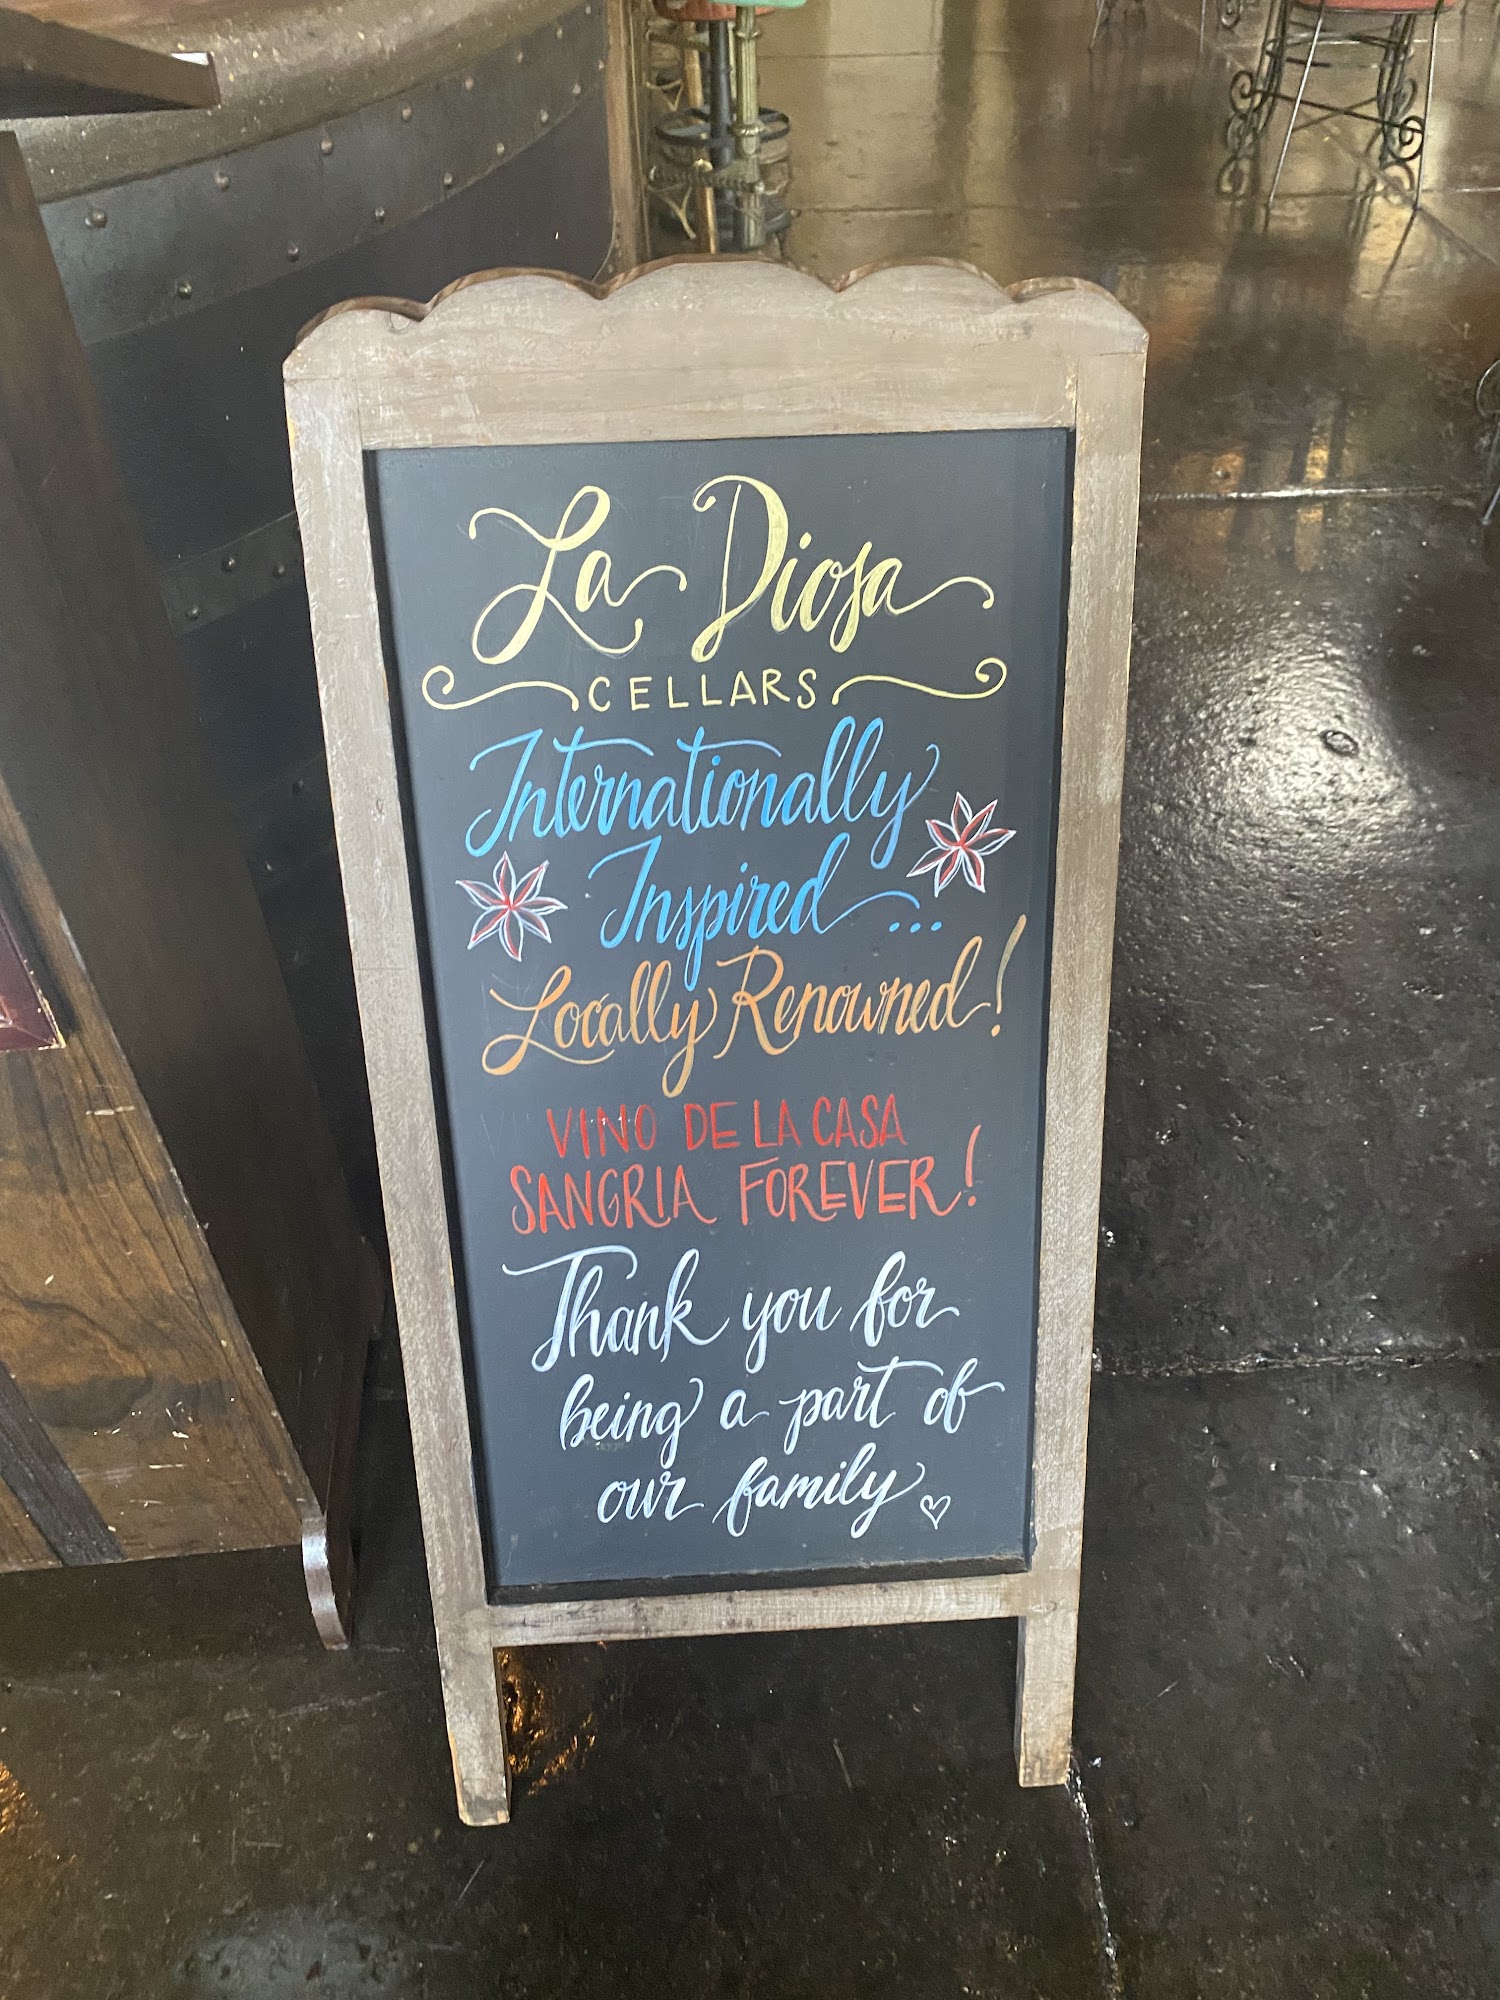 La Diosa
CELLARS
Internationally
Inspired ...
Locally Renowned!
VINO DE LA CASA
SANGRIA FOREVER!
Thank you for
being a part of
our family